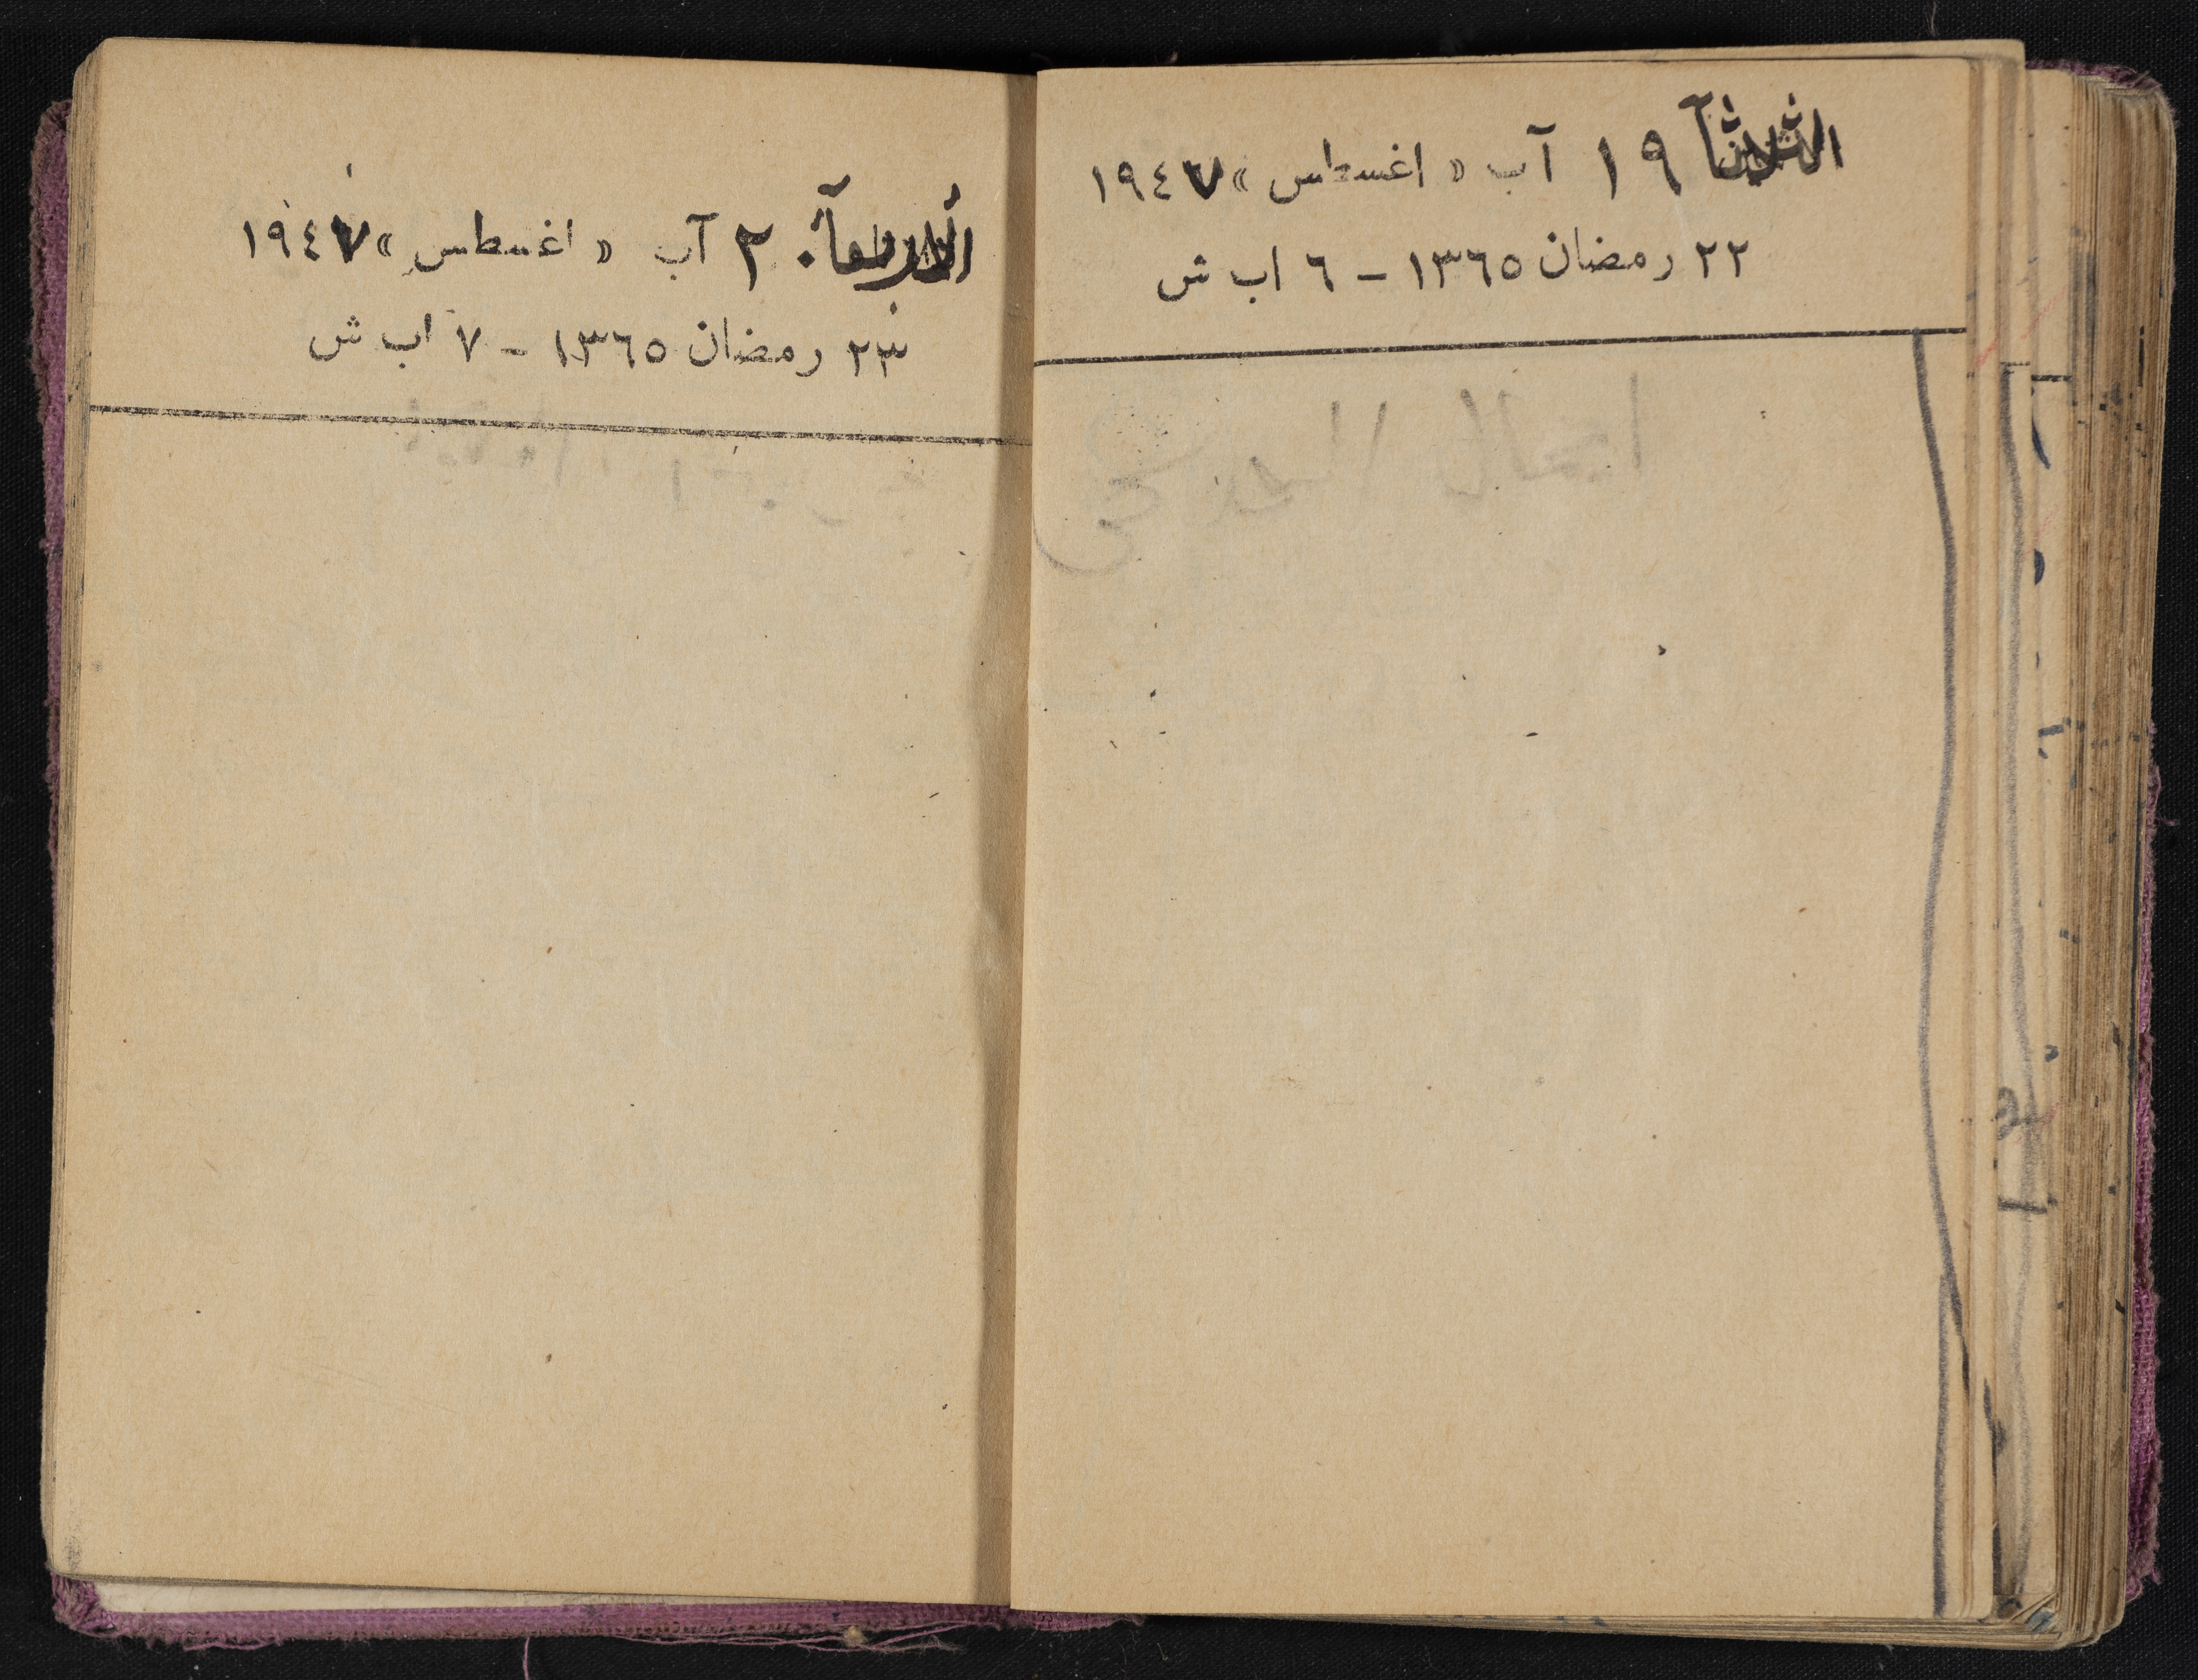 الثلاثآ ١٩ آب « اغسطس » ١٩٤٧
٢٢ رمضان ١٣٦٥ - ٦ اب ش
الاربعآ ٢٠ آب « اغسطس » ١٩٤٧
٢٣ رمضان ١٣٦٥ - ٧ اب ش